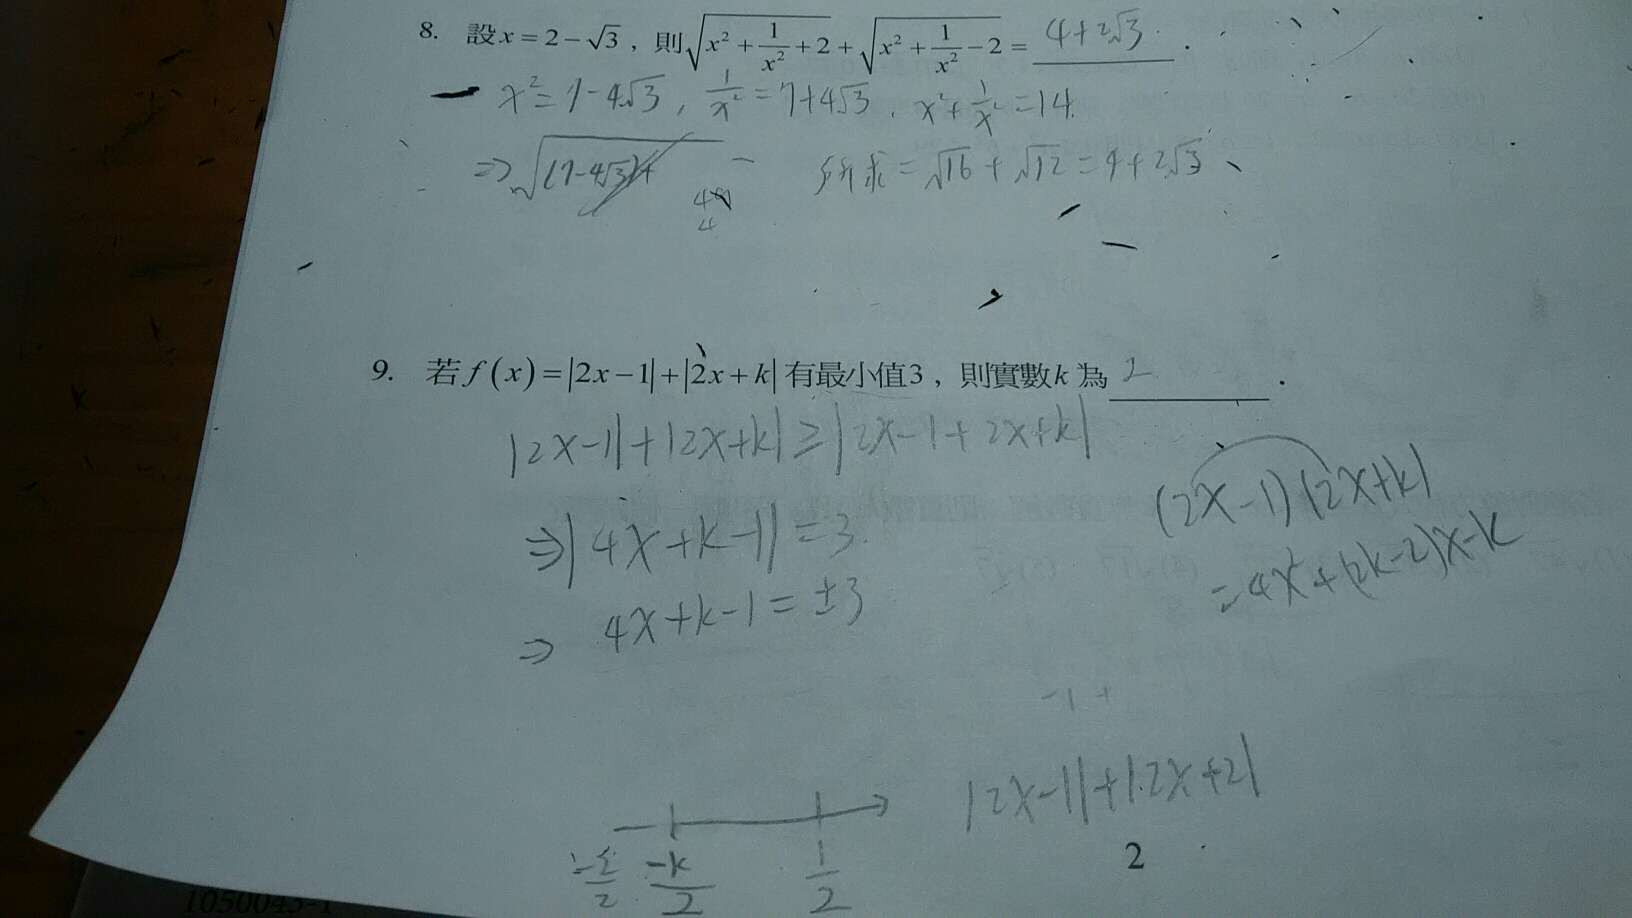 8. 設 x = 2 − √3 , 則 √(x² + 1/x² + 2) + √(x² + 1/x² − 2) = 4+2√3 .
x² = 7−4√3 , 1/x² = 7+4√3 , x² + 1/x² = 14.
⇒ √(7−4√3)+ 所求 = √16 + √12 = 4+2√3
4
9. 若 f(x) = |2x−1| + |2x+k| 有最小值3 , 則實數 k 為 2 .
|2x−1|+|2x+k| ≥ |2x−1+2x+k|
(2x−1)(2x+k)
⇒ |4x+k−1| = 3
= 4x²+(2k−2)x−k
⇒ 4x+k−1 = ±3
−1 +
|2x−1|+|2x+2|
−k/2 1/2
2
1050045-1